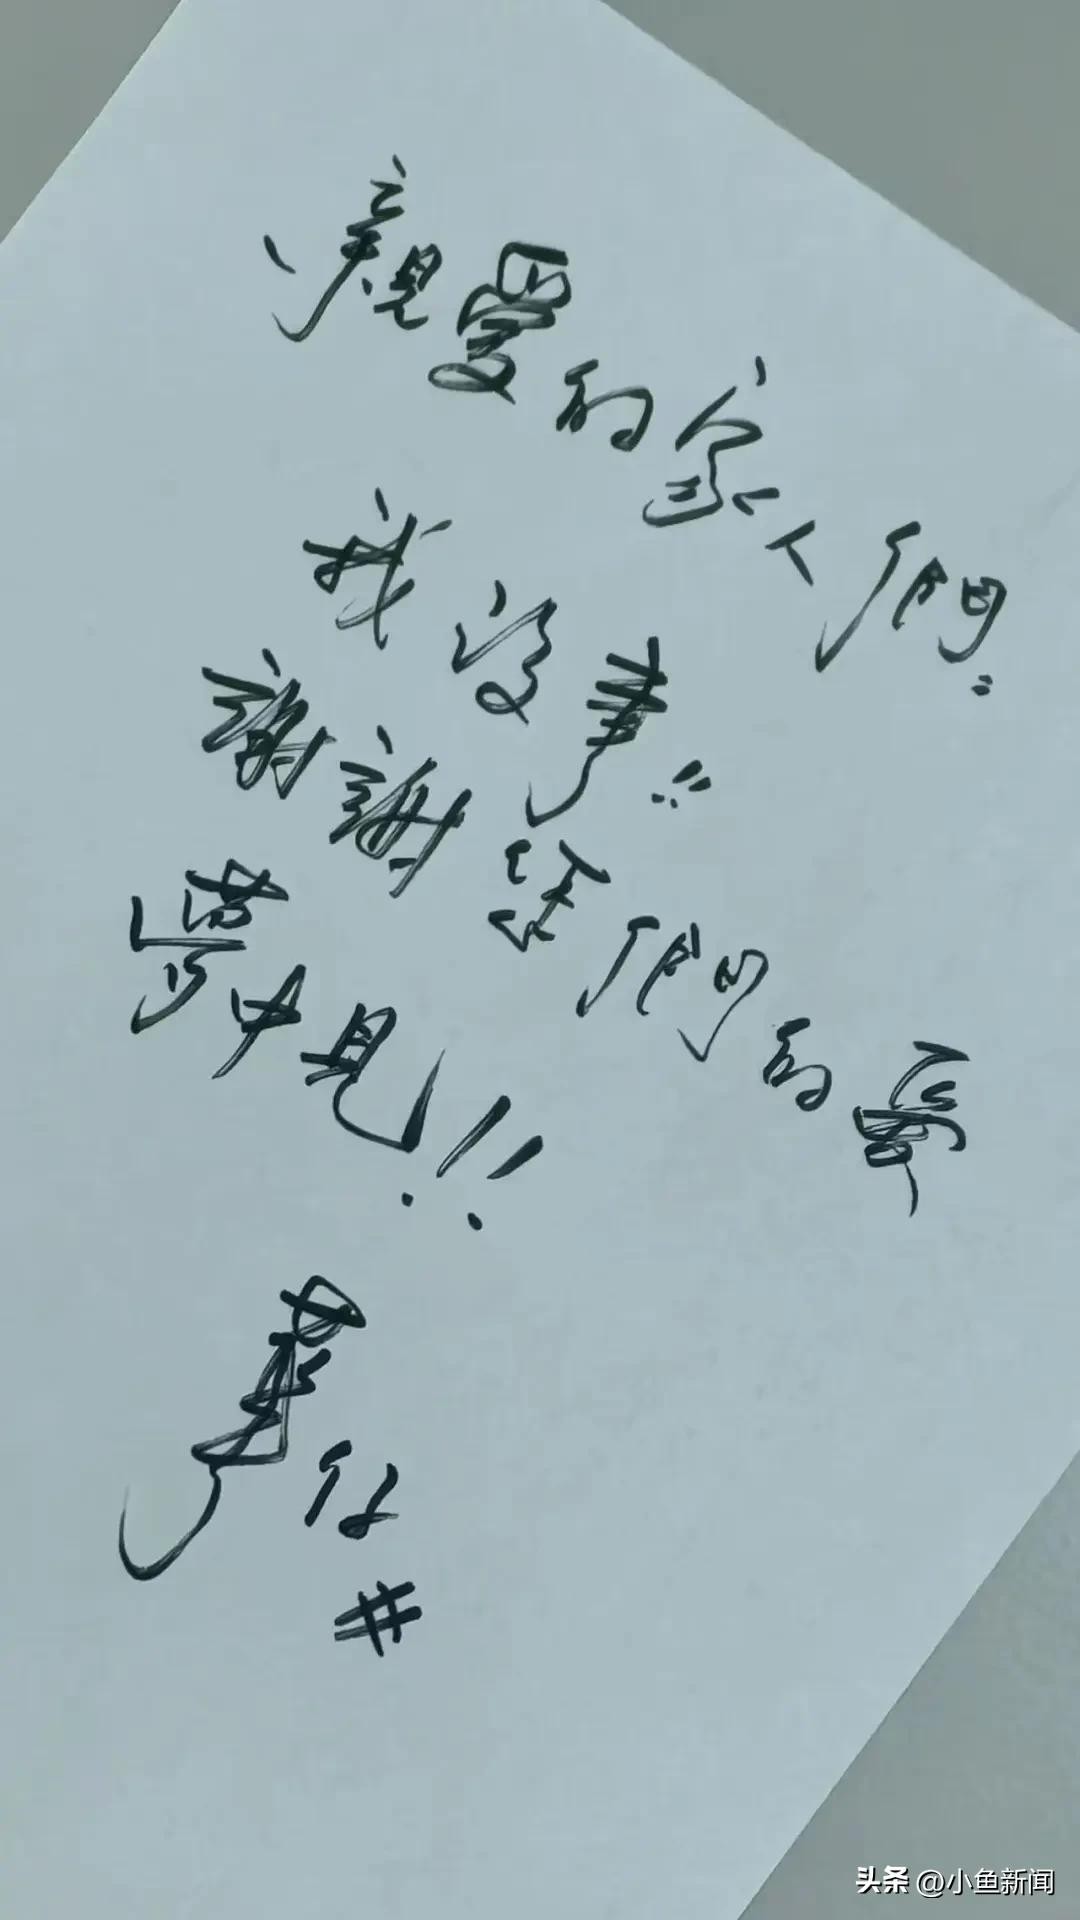 親愛的家人們:
我沒事!!
謝謝您們的愛
夢中見!!!
華仔
#
头条 @小鱼新闻